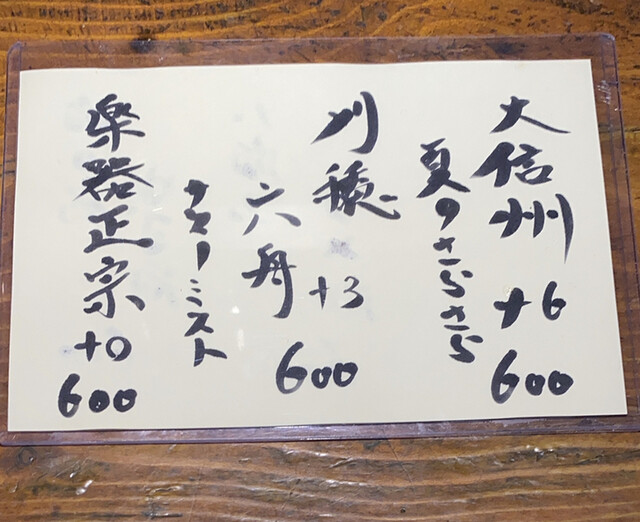 大信州 +6 600
夏のさらさら
川鶴 +3
六舟 600
チャーミスト
楽器正宗 +0 600